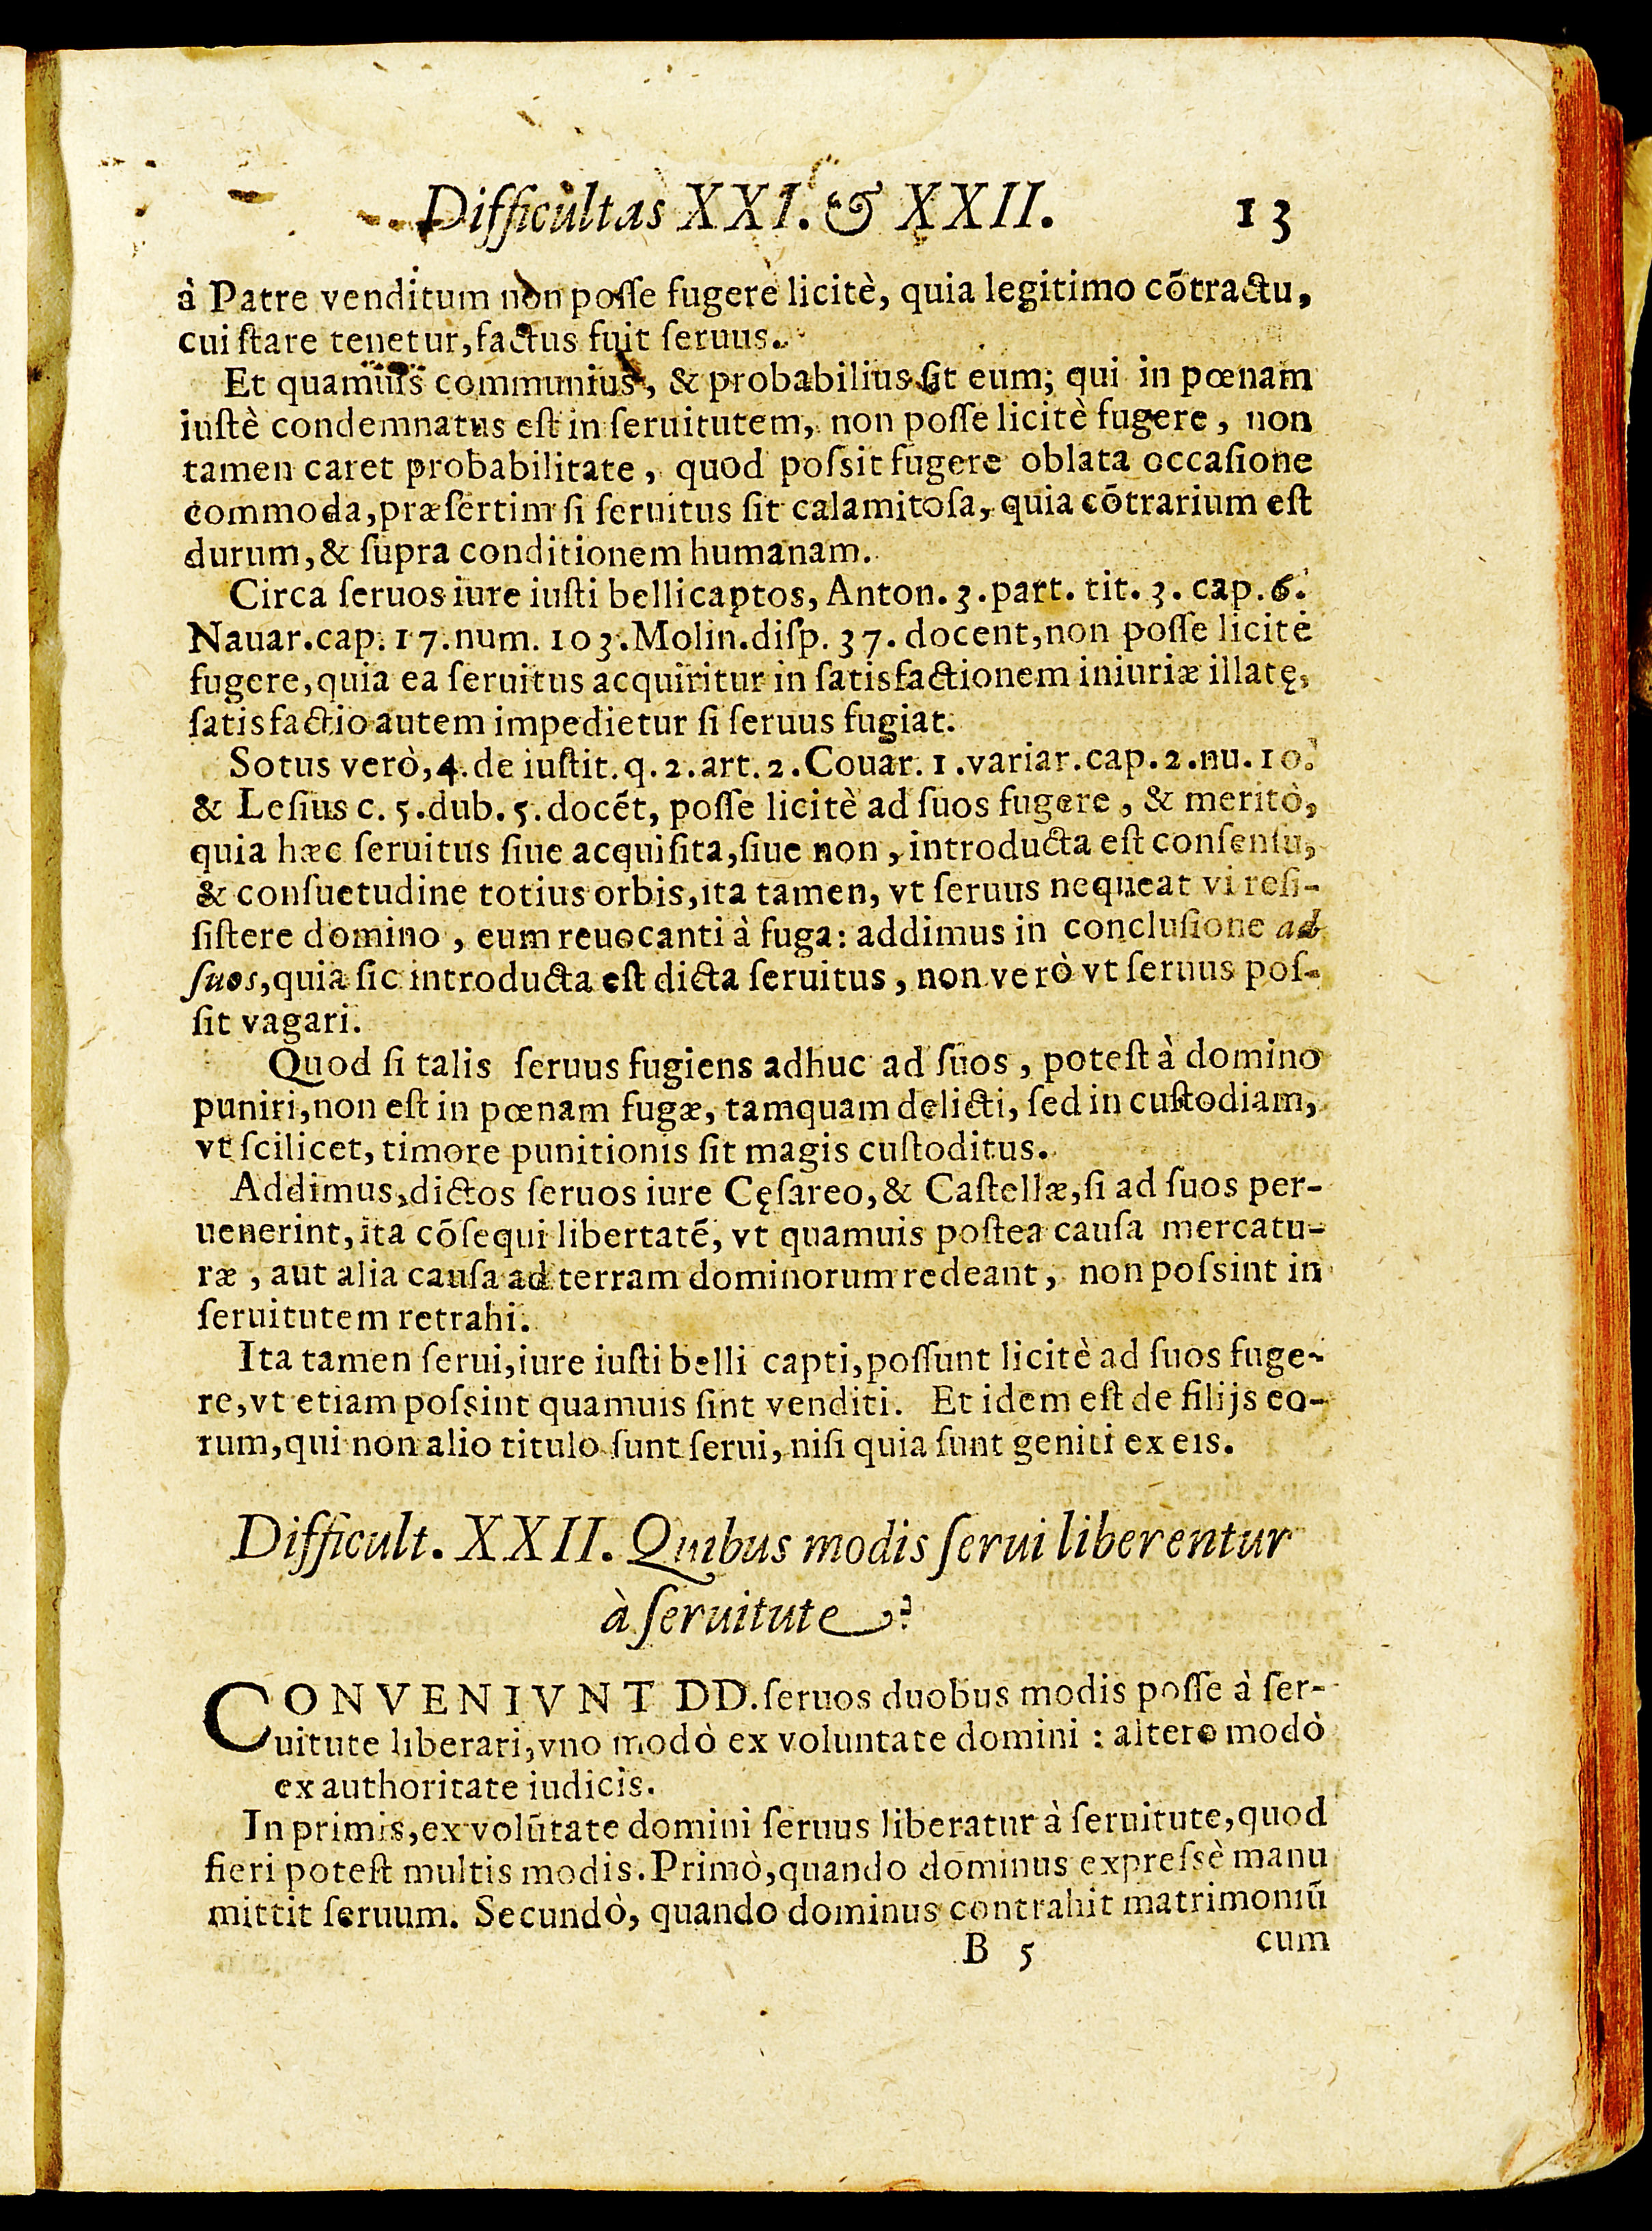 Difficultas XXI. & XXII. 13
à Patre venditum non posse fugere licitè, quia legitimo cōtractu,
cui stare tenetur, factus fuit seruus.
Et quamuis communius, & probabilius sit eum; qui in pœnam
iustè condemnatus est in seruitutem, non posse licitè fugere, non
tamen caret probabilitate, quod possit fugere oblata occasione
commoda, præsertim si seruitus sit calamitosa, quia cōtrarium est
durum, & supra conditionem humanam.
Circa seruos iure iusti belli captos, Anton. 3. part. tit. 3. cap. 6.
Nauar. cap. 17. num. 103. Molin. disp. 37. docent, non posse licitè
fugere, quia ea seruitus acquiritur in satisfactionem iniuriæ illatę,
satisfactio autem impedietur si seruus fugiat.
Sotus verò, 4. de iustit. q. 2. art. 2. Couar. 1. variar. cap. 2. nu. 10.
& Lesius c. 5. dub. 5. docēt, posse licitè ad suos fugere, & meritò,
quia hæc seruitus siue acquisita, siue non, introducta est consensu,
& consuetudine totius orbis, ita tamen, vt seruus nequeat vi resi-
sistere domino, eum reuocanti à fuga: addimus in conclusione ad
suos, quia sic introducta est dicta seruitus, non verò vt seruus pos-
sit vagari.
Quod si talis seruus fugiens adhuc ad suos, potest à domino
puniri, non est in pœnam fugæ, tamquam delicti, sed in custodiam,
vt scilicet, timore punitionis sit magis custoditus.
Addimus, dictos seruos iure Cęsareo, & Castellæ, si ad suos per-
uenerint, ita cōsequi libertatē, vt quamuis postea causa mercatu-
ræ, aut alia causa ad terram dominorum redeant, non possint in
seruitutem retrahi.
Ita tamen serui, iure iusti belli capti, possunt licitè ad suos fuge-
re, vt etiam possint quamuis sint venditi. Et idem est de filijs eo-
rum, qui non alio titulo sunt serui, nisi quia sunt geniti ex eis.
Difficult. XXII. Quibus modis serui liberentur
à seruitute?
CONVENIVNT DD. seruos duobus modis posse à ser-
uitute liberari, vno modò ex voluntate domini: altero modò
ex authoritate iudicis.
In primis, ex volūtate domini seruus liberatur à seruitute, quod
fieri potest multis modis. Primò, quando dominus expressè manu
mittit seruum. Secundò, quando dominus contrahit matrimoniū
B 5 cum